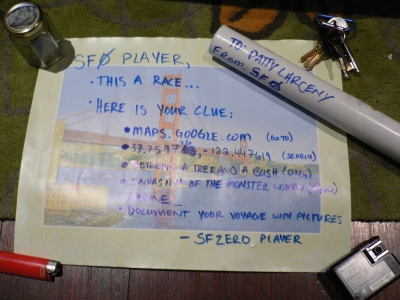 SFØ PLAYER,
• THIS A RACE...
• HERE IS YOUR CLUE:
• MAPS.GOOGLE.COM (GO TO)
, -122.447619 (SEARCH)
BETWEEN A TREE AND A BUSH (DIG)
OF THE MONSTER
• DOCUMENT YOUR VOYAGE W/IN PICTURES
— SFZERO PLAYER
TO: PATTY LARCENY
FROM: SFØ